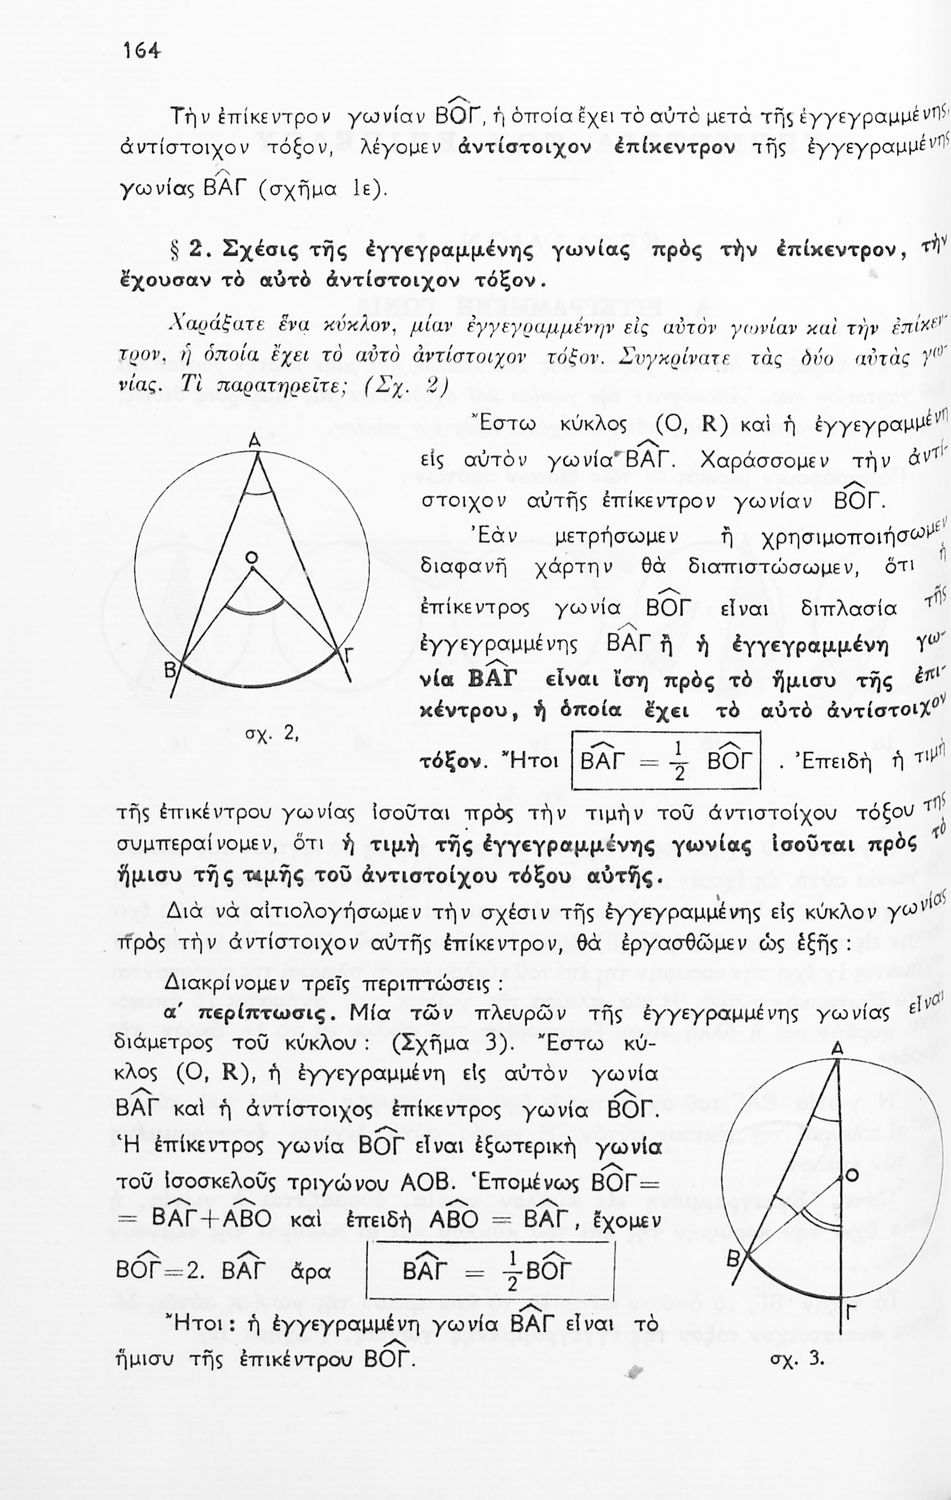 164
Τὴν ἐπίκεντρον γωνίαν ΒΟ̂Γ, ἡ ὁποία ἔχει τὸ αὐτὸ μετὰ τῆς ἐγγεγραμμένης
ἀντίστοιχον τόξον, λέγομεν ἀντίστοιχον ἐπίκεντρον τῆς ἐγγεγραμμένης
γωνίας ΒΑ̂Γ (σχῆμα 1ε).
§ 2. Σχέσις τῆς ἐγγεγραμμένης γωνίας πρὸς τὴν ἐπίκεντρον, τὴν
ἔχουσαν τὸ αὐτὸ ἀντίστοιχον τόξον.
Χαράξατε ἕνα κύκλον, μίαν ἐγγεγραμμένην εἰς αὐτὸν γωνίαν καὶ τὴν ἐπίκεν-
τρον, ἡ ὁποία ἔχει τὸ αὐτὸ ἀντίστοιχον τόξον. Συγκρίνατε τὰς δύο αὐτὰς γω-
νίας. Τί παρατηρεῖτε; (Σχ. 2)
Ἔστω κύκλος (Ο, R) καὶ ἡ ἐγγεγραμμένη
εἰς αὐτὸν γωνία ΒΑ̂Γ. Χαράσσομεν τὴν ἀντί-
στοιχον αὐτῆς ἐπίκεντρον γωνίαν ΒΟ̂Γ.
Ἐὰν μετρήσωμεν ἢ χρησιμοποιήσωμεν
διαφανῆ χάρτην θὰ διαπιστώσωμεν, ὅτι ἡ
ἐπίκεντρος γωνία ΒΟ̂Γ εἶναι διπλασία τῆς
ἐγγεγραμμένης ΒΑ̂Γ ἢ ἡ ἐγγεγραμμένη γω-
νία ΒΑ̂Γ εἶναι ἴση πρὸς τὸ ἥμισυ τῆς ἐπι-
κέντρου, ἡ ὁποία ἔχει τὸ αὐτὸ ἀντίστοιχον
τόξον. Ἤτοι ΒΑ̂Γ = 1/2 ΒΟ̂Γ . Ἐπειδὴ ἡ τιμὴ
Α
Ο
Β
Γ
σχ. 2,
τῆς ἐπικέντρου γωνίας ἰσοῦται πρὸς τὴν τιμὴν τοῦ ἀντιστοίχου τόξου της
συμπεραίνομεν, ὅτι ἡ τιμὴ τῆς ἐγγεγραμμένης γωνίας ἰσοῦται πρὸς τὸ
ἥμισυ τῆς τιμῆς τοῦ ἀντιστοίχου τόξου αὐτῆς.
Διὰ νὰ αἰτιολογήσωμεν τὴν σχέσιν τῆς ἐγγεγραμμένης εἰς κύκλον γωνίας
πρὸς τὴν ἀντίστοιχον αὐτῆς ἐπίκεντρον, θὰ ἐργασθῶμεν ὡς ἑξῆς :
Διακρίνομεν τρεῖς περιπτώσεις :
α΄ περίπτωσις. Μία τῶν πλευρῶν τῆς ἐγγεγραμμένης γωνίας εἶναι
διάμετρος τοῦ κύκλου : (Σχῆμα 3). Ἔστω κύ-
κλος (Ο, R), ἡ ἐγγεγραμμένη εἰς αὐτὸν γωνία
ΒΑ̂Γ καὶ ἡ ἀντίστοιχος ἐπίκεντρος γωνία ΒΟ̂Γ
Ἡ ἐπίκεντρος γωνία ΒΟ̂Γ εἶναι ἐξωτερικὴ γωνία
τοῦ ἰσοσκελοῦς τριγώνου ΑΟΒ. Ἑπομένως ΒΟ̂Γ=
= ΒΑ̂Γ+ΑΒ̂Ο καὶ ἐπειδὴ ΑΒ̂Ο = ΒΑ̂Γ, ἔχομεν
ΒΟ̂Γ=2. ΒΑ̂Γ ἄρα ΒΑ̂Γ = 1/2 ΒΟ̂Γ
Ἤτοι : ἡ ἐγγεγραμμένη γωνία ΒΑ̂Γ εἶναι τὸ
ἥμισυ τῆς ἐπικέντρου ΒΟ̂Γ.
Α
Ο
Β
Γ
σχ. 3.